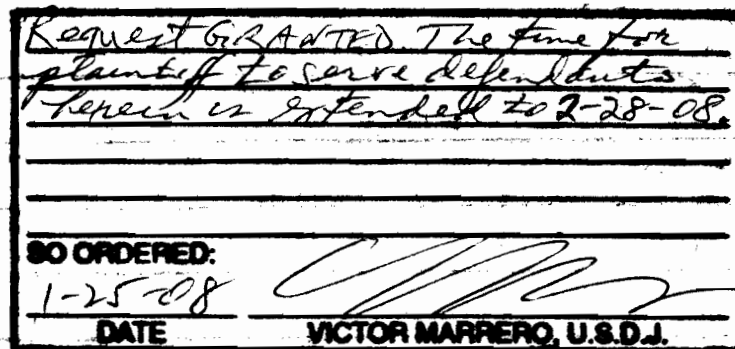 Request GRANTED. The time for
plaintiff to serve defendants
herein is extended to 2-28-08.
SO ORDERED:
1-25-08
DATE VICTOR MARRERO, U.S.D.J.